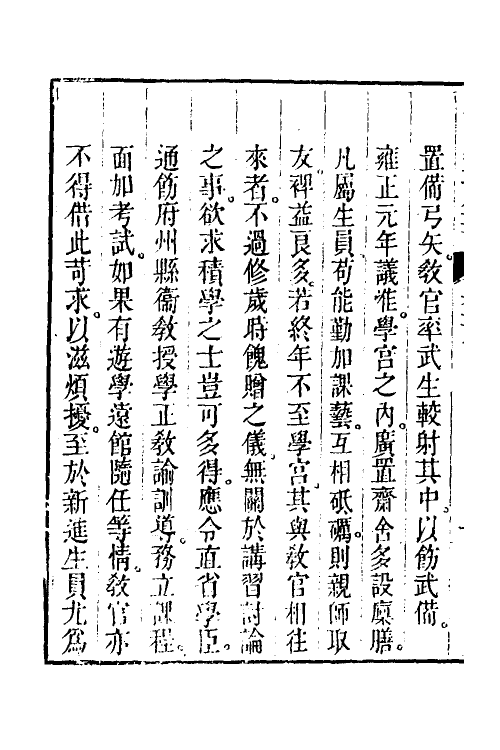 置備弓矢。敎官率武生較射其中。以飭武備。
雍正元年議准。學宮之內。廣置齋舍。多設廩膳。
凡屬生員。苟能勤加課藝。互相砥礪。則親師取
友。裨益良多。若終年不至學宮。其與敎官相往
來者。不過修歲時餽贈之儀。無關於講習討論
之事。欲求積學之士。豈可多得。應令直省學臣。
通飭府州縣衞敎授學正敎諭訓導。務立課程。
面加考試。如果有遊學遠館隨任等情。敎官亦
不得借此苛求。以滋煩擾。至於新進生員。尤爲